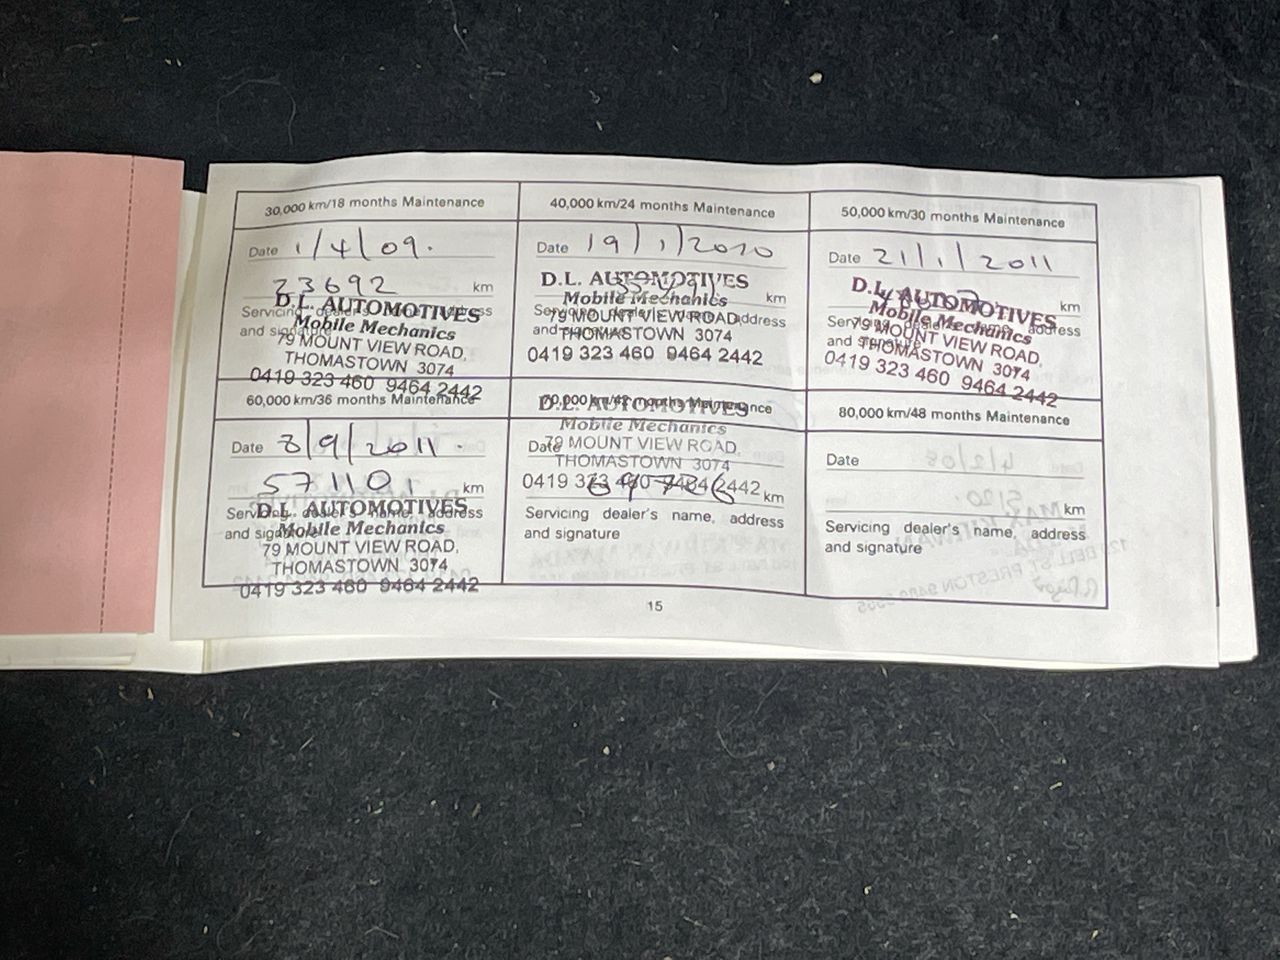 30,000 km/18 months Maintenance
Date 1/4/09.
23692 km
D.L. AUTOMOTIVES
Servicing dealer's name, address
Mobile Mechanics
and signature
79 MOUNT VIEW ROAD,
THOMASTOWN 3074
0419 323 460 9464 2442
40,000 km/24 months Maintenance
Date 19/1/2010
D.L. AUTOMOTIVES
km
Mobile Mechanics
Servicing dealer's name, address
79 MOUNT VIEW ROAD,
and signature
THOMASTOWN 3074
0419 323 460 9464 2442
50,000 km/30 months Maintenance
Date 21/1/2011
D.L. AUTOMOTIVES
km
Mobile Mechanics
Servicing dealer's name, address
79 MOUNT VIEW ROAD,
and signature
THOMASTOWN 3074
0419 323 460 9464 2442
60,000 km/36 months Maintenance
Date 8/9/2011.
571101 km
D.L. AUTOMOTIVES
Servicing dealer's name, address
Mobile Mechanics
and signature
79 MOUNT VIEW ROAD,
THOMASTOWN 3074
0419 323 460 9464 2442
70,000 km/42 months Maintenance
D.L. AUTOMOTIVES
Mobile Mechanics
Date
79 MOUNT VIEW ROAD,
THOMASTOWN 3074
0419 323 460 9464 2442
69726 km
Servicing dealer's name, address
and signature
80,000 km/48 months Maintenance
Date
km
Servicing dealer's name, address
and signature
15